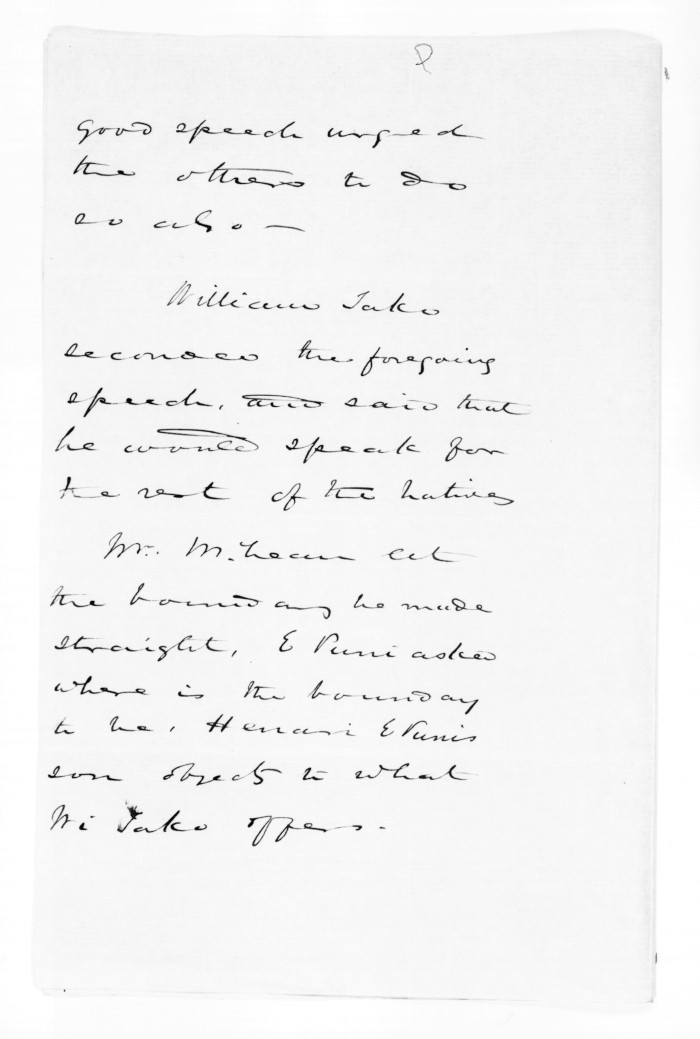 good speech urged
the others to do
so also —
William Tako
seconded the foregoing
speech, and said that
he would speak for
the rest of the natives
Mr. McLean let
the boundary be made
straight, E Puni asked
where is the boundary
to be. Henari E Punis
son objects to what
Wi Tako offers.